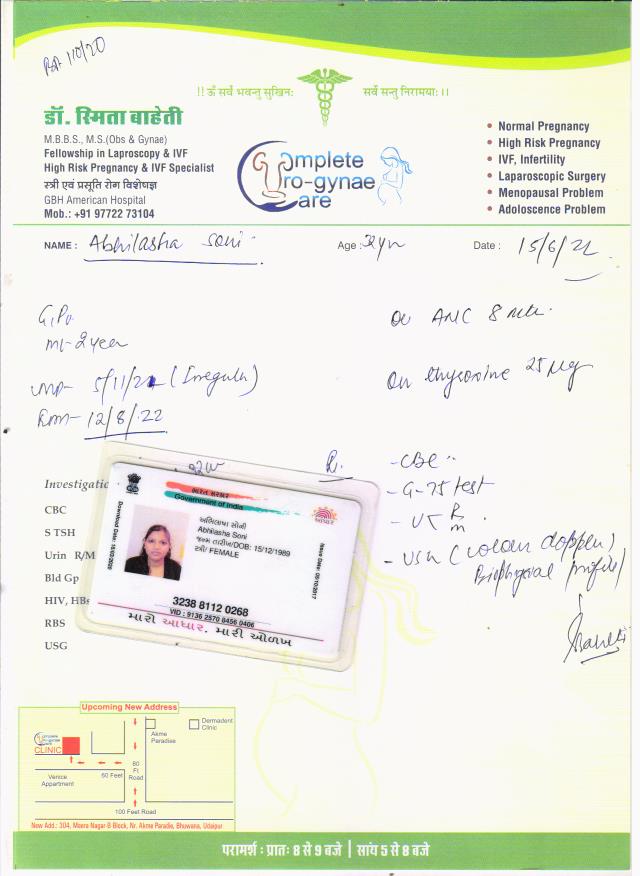 BP. 110/20
!! ॐ सर्वे भवन्तु सुखिनः सर्वे सन्तु निरामयाः।।
डॉ. स्मिता बाहेती
M.B.B.S., M.S.(Obs & Gynae)
Fellowship in Laproscopy & IVF
High Risk Pregnancy & IVF Specialist
स्त्री एवं प्रसूति रोग विशेषज्ञ
GBH American Hospital
Mob.: +91 97722 73104
Complete
Uro-gynae
Care
• Normal Pregnancy
• High Risk Pregnancy
• IVF, Infertility
• Laparoscopic Surgery
• Menopausal Problem
• Adoloscence Problem
NAME : Abhilasha Soni Age : 32yr Date : 15/6/22
G1P0
ml-2year
LMP- 5/11/21 (Irregular)
EDD- 12/8/22
On ANC 8 mth.
On thyroxine 25 µg
R.
- CBC
- G-75 test
- U R/m
- USG (colour doppler)
Biophysical profile
Investigatio
CBC
S TSH
Urin R/M
Bld Gp
HIV, HBs
RBS
USG
ભારત સરકાર
Government of India
આધાર
Download Date: 18/02/2020
અભિલાષા સોની
Abhilasha Soni
જન્મ તારીખ/DOB: 15/12/1989
સ્ત્રી/ FEMALE
Issue Date: 05/10/2017
3238 8112 0268
VID : 9136 2570 8456 0406
મારો આધાર, મારી ઓળખ
Upcoming New Address
Complete
Uro-gynae
Care
CLINIC
Akme
Paradise
Dermadent
Clinic
Venice
Appartment
60 Feet
80
Ft
Road
100 Feet Road
New Add.: 304, Meera Nagar-B Block, Nr. Akme Paradie, Bhuwana, Udaipur
परामर्श : प्रातः 8 से 9 बजे | सांय 5 से 8 बजे